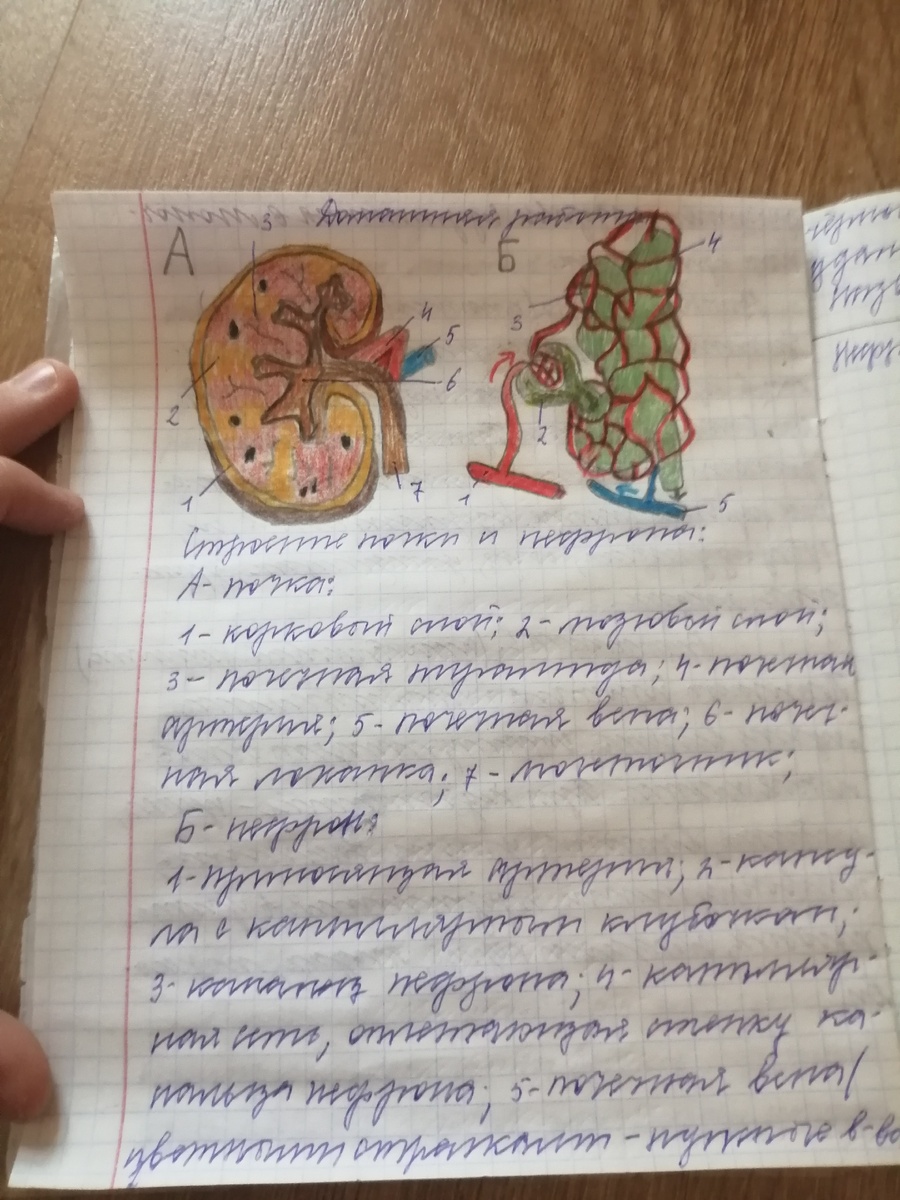 Домашняя работа
А
Б
3
4
4
5
3
6
2
2
1
7
1
5
Строение почки и нефрона:
А- почка:
1- корковый слой; 2- мозговой слой;
3- почечная пирамида; 4- почечная
артерия; 5- почечная вена; 6- почеч-
ная лоханка; 7- мочеточник;
Б- нефрон:
1- приносящая артерия; 2- капсу-
ла с капиллярным клубочком;
3- каналец нефрона; 4- капилляр-
ная сеть, оплетающая стенку ка-
нальца нефрона; 5- почечная вена/
цветными - нужные в-ва